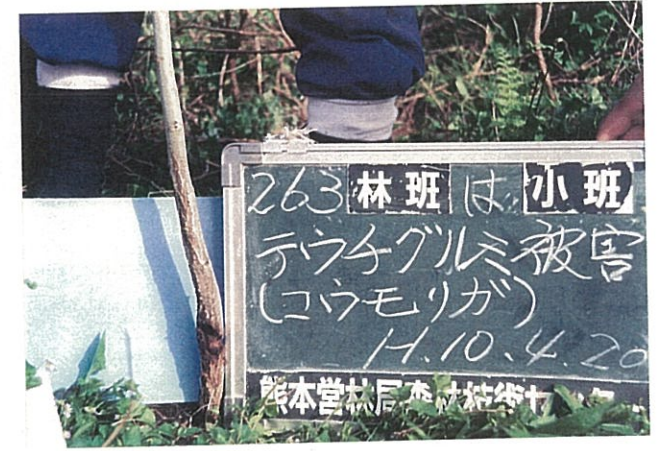 263 林班 は 小班
テウチグルミ被害
(コウモリガ)
H.10.4.20
熊本営林局森林技術センター